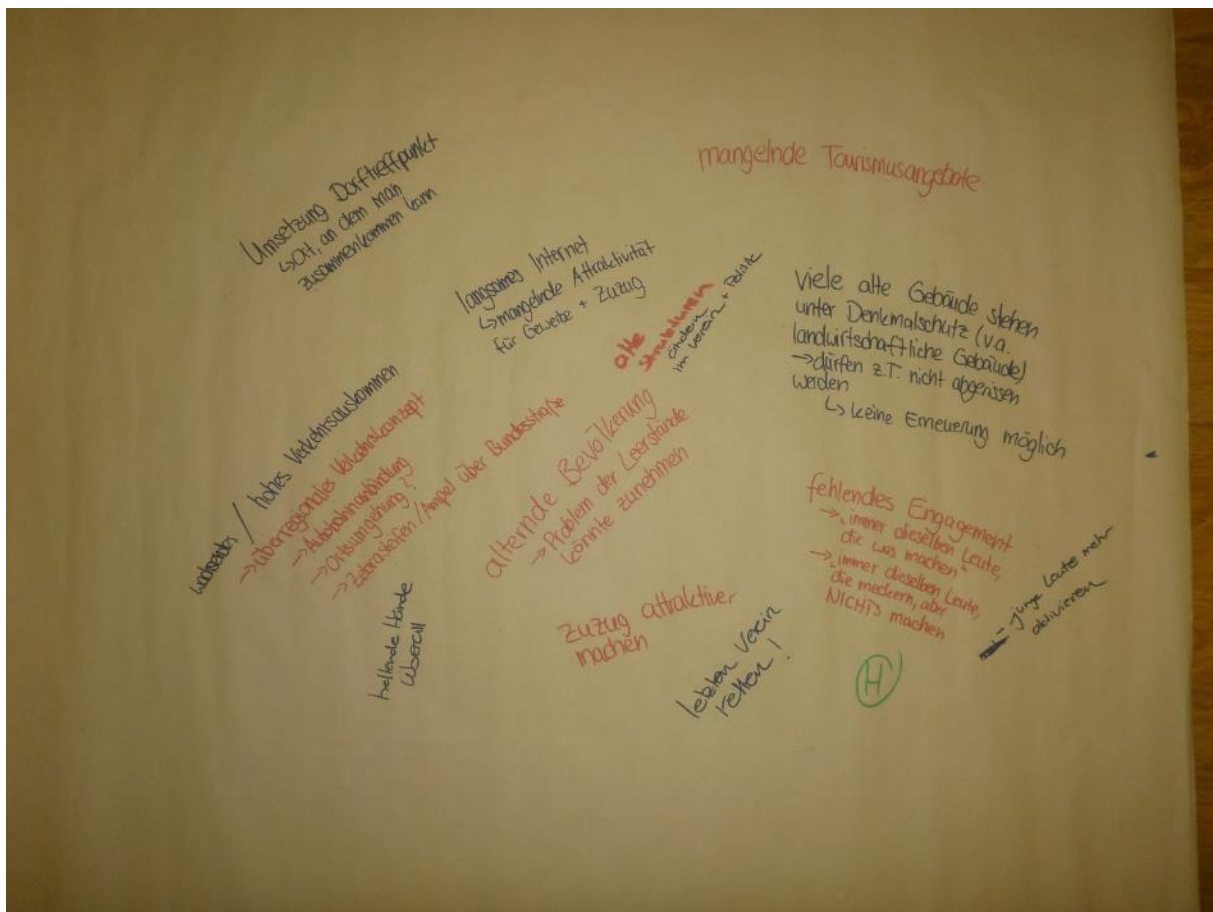 Umsetzung Dorftreffpunkt
↳ Ort, an dem man
zusammenkommen kann
mangelnde Tourismusangebote
langsames Internet
↳ mangelnde Attraktivität
für Gewerbe + Zuzug
alte
Strukturen
ändern
im Verein + Politik
viele alte Gebäude stehen
unter Denkmalschutz (v.a.
landwirtschaftliche Gebäude)
→ dürfen z.T. nicht abgerissen
werden
↳ keine Erneuerung möglich
wachsendes / hohes Verkehrsaufkommen
→ überregionales Verkehrskonzept
→ Autobahnanbindung
→ Ortsumgehung?
→ Zebrastreifen / Ampel über Bundesstraße
alternde Bevölkerung
→ Problem der Leerstände
könnte zunehmen
fehlendes Engagement
→ "immer dieselben Leute,
die was machen"
→ "immer dieselben Leute,
die meckern, aber
NICHTS machen
- junge Leute mehr
aktivieren
helfende Hände
überall
Zuzug attraktiver
machen
letzten Verein
retten!
H